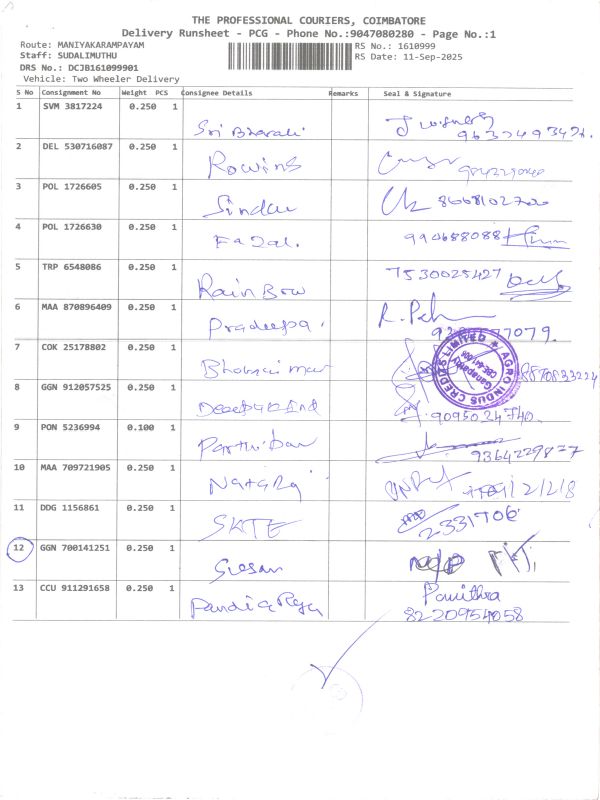 THE PROFESSIONAL COURIERS, COIMBATORE
Delivery Runsheet - PCG - Phone No.:9047080280 - Page No.:1
Route: MANIYAKARAMPAYAM RS No.: 1610999
Staff: SUDALIMUTHU RS Date: 11-Sep-2025
DRS No.: DCJB161099901
Vehicle: Two Wheeler Delivery
S No Consignment No Weight PCS Consignee Details Remarks Seal & Signature
1 SVM 3817224 0.250 1
Sri Bharali
2 DEL 530716087 0.250 1
Rowins
3 POL 1726605 0.250 1
Sindhu 8668102700
4 POL 1726630 0.250 1
Fazal.
5 TRP 6548086 0.250 1
Rain Bow 7530025427
6 MAA 870896409 0.250 1
Pradeepa R.
7 COK 25178802 0.250 1
AGRO INDUS CREDITS LIMITED
Ganapathy
CBE-641 006
8 GGN 912057525 0.250 1
9095034740
9 PON 5236994 0.100 1
Parthiban 9364229877
10 MAA 709721905 0.250 1
Nataraj
11 DDG 1156861 0.250 1
SKTE 2331706
12 GGN 700141251 0.250 1
Susan
13 CCU 911291658 0.250 1
Pandia Raja Pavithra
8220954058